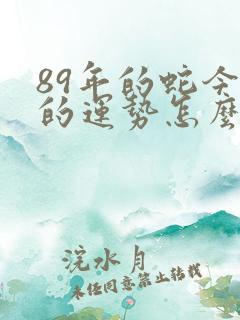 89年的蛇今
的运势怎麼
浣水月
未经同意禁止转载